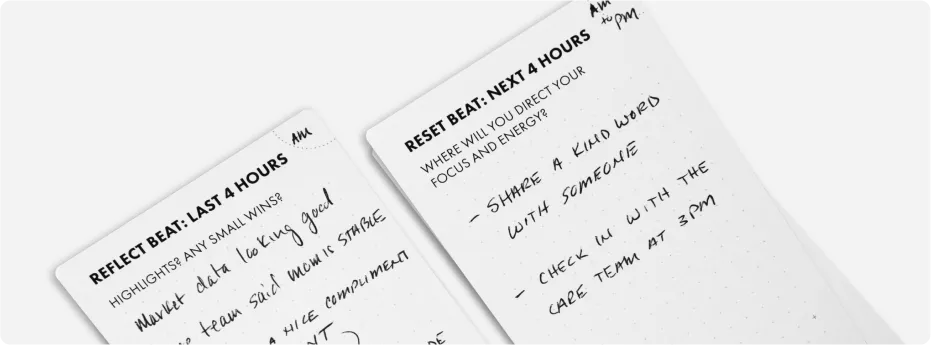 AM
REFLECT BEAT: LAST 4 HOURS
HIGHLIGHTS? ANY SMALL WINS?
market data looking good
team said mom is STABLE
A NICE COMPLIMENT
AM
to PM
RESET BEAT: NEXT 4 HOURS
WHERE WILL YOU DIRECT YOUR
FOCUS AND ENERGY?
- SHARE A KIND WORD
WITH SOMEONE
- CHECK IN WITH THE
CARE TEAM AT 3PM